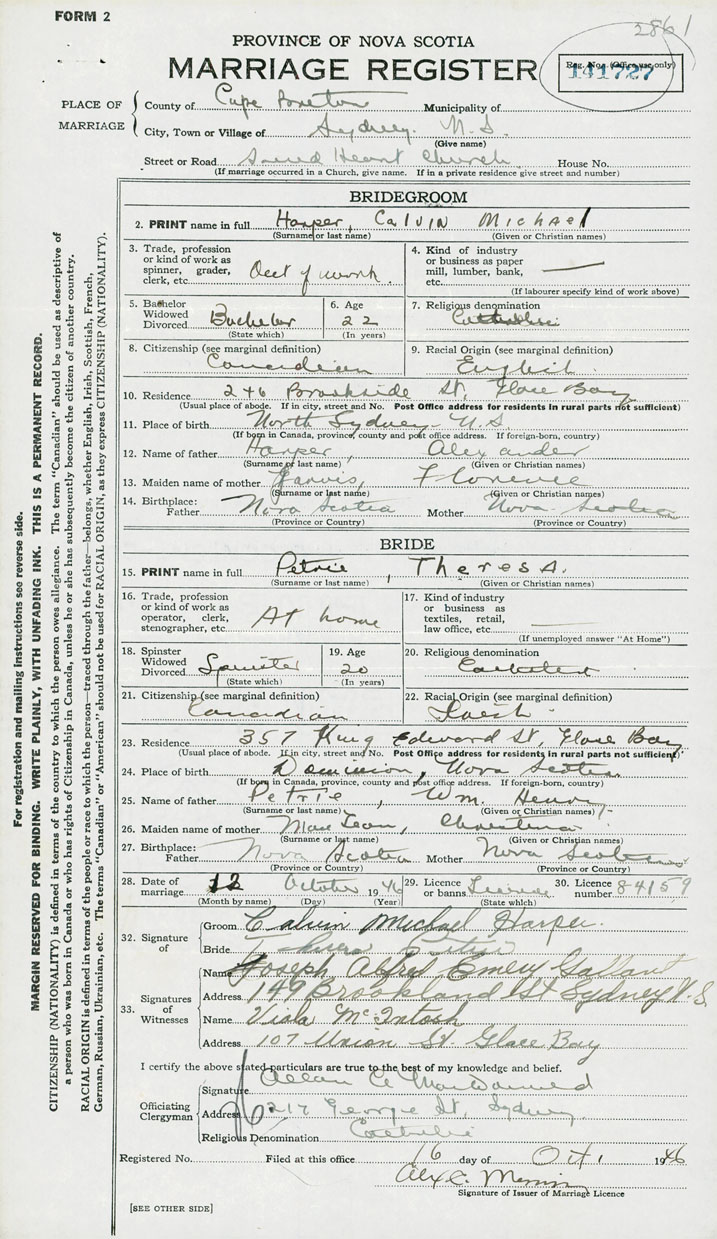 2861
FORM 2
PROVINCE OF NOVA SCOTIA
MARRIAGE REGISTER
Reg. No. (Office use only)
141727
PLACE OF MARRIAGE
County of Cape Breton Municipality of
City, Town or Village of Sydney. N.S.
(Give name)
Street or Road Sacred Heart Church House No.
(If marriage occurred in a Church, give name. If in a private residence give street and number)
For registration and mailing instructions see reverse side.
MARGIN RESERVED FOR BINDING. WRITE PLAINLY, WITH UNFADING INK. THIS IS A PERMANENT RECORD.
CITIZENSHIP (NATIONALITY) is defined in terms of the country to which the person owes allegiance. The term "Canadian" should be used as descriptive of
a person who was born in Canada or who has rights of Citizenship in Canada, unless he or she has subsequently become the citizen of another country.
RACIAL ORIGIN is defined in terms of the people or race to which the person—traced through the father—belongs, whether English, Irish, Scottish, French,
German, Russian, Ukrainian, etc. The terms "Canadian" or "American" should not be used for RACIAL ORIGIN, as they express CITIZENSHIP (NATIONALITY).
BRIDEGROOM
2. PRINT name in full Harper, CalVIN Michael
(Surname or last name) (Given or Christian names)
3. Trade, profession or kind of work as spinner, grader, clerk, etc. Out of work.
4. Kind of industry or business as paper mill, lumber, bank, etc. —
(If labourer specify kind of work above)
5. Bachelor Widowed Divorced Bachelor
(State which)
6. Age 22
(In years)
7. Religious denomination Catholic
8. Citizenship (see marginal definition) Canadian
9. Racial Origin (see marginal definition) English
10. Residence 246 Brookside St, Glace Bay
(Usual place of abode. If in city, street and No. Post Office address for residents in rural parts not sufficient)
11. Place of birth North Sydney N.S.
(If born in Canada, province, county and post office address. If foreign-born, country)
12. Name of father Harper, Alexander
(Surname or last name) (Given or Christian names)
13. Maiden name of mother Jarvis, Florence
(Surname or last name) (Given or Christian names)
14. Birthplace: Father Nova Scotia Mother Nova Scotia
(Province or Country) (Province or Country)
BRIDE
15. PRINT name in full Petrie, TheresA.
(Surname or last name) (Given or Christian names)
16. Trade, profession or kind of work as operator, clerk, stenographer, etc. At home
17. Kind of industry or business as textiles, retail, law office, etc. —
(If unemployed answer "At Home")
18. Spinster Widowed Divorced Spinster
(State which)
19. Age 20
(In years)
20. Religious denomination Catholic
21. Citizenship (see marginal definition) Canadian
22. Racial Origin (see marginal definition)
23. Residence 357 King Edward St, Glace Bay
(Usual place of abode. If in city, street and No. Post Office address for residents in rural parts not sufficient)
24. Place of birth Dominion, Nova Scotia
(If born in Canada, province, county and post office address. If foreign-born, country)
25. Name of father Petrie, Wm. Henry
(Surname or last name) (Given or Christian names)
26. Maiden name of mother MacLean, Christina
(Surname or last name) (Given or Christian names)
27. Birthplace: Father Nova Scotia Mother Nova Scotia
(Province or Country) (Province or Country)
28. Date of marriage 12 October 1946
(Month by name) (Day) (Year)
29. Licence or banns License
(State which)
30. Licence number 84159
32. Signature of
Groom Calvin Michael Harper.
Bride Theresa Petrie
33. Signatures of Witnesses
Name Joseph Alfred Emery Gallant
Address 149 Brookland St Sydney N.S
Name Viola McIntosh
Address 107 Union St. Glace Bay
I certify the above stated particulars are true to the best of my knowledge and belief.
Officiating Clergyman
Signature Allan A. MacDonald
Address 217 George St, Sydney
Religious Denomination Catholic
Registered No. Filed at this office 16 day of Oct 1946
Alex C.
Signature of Issuer of Marriage Licence
[SEE OTHER SIDE]